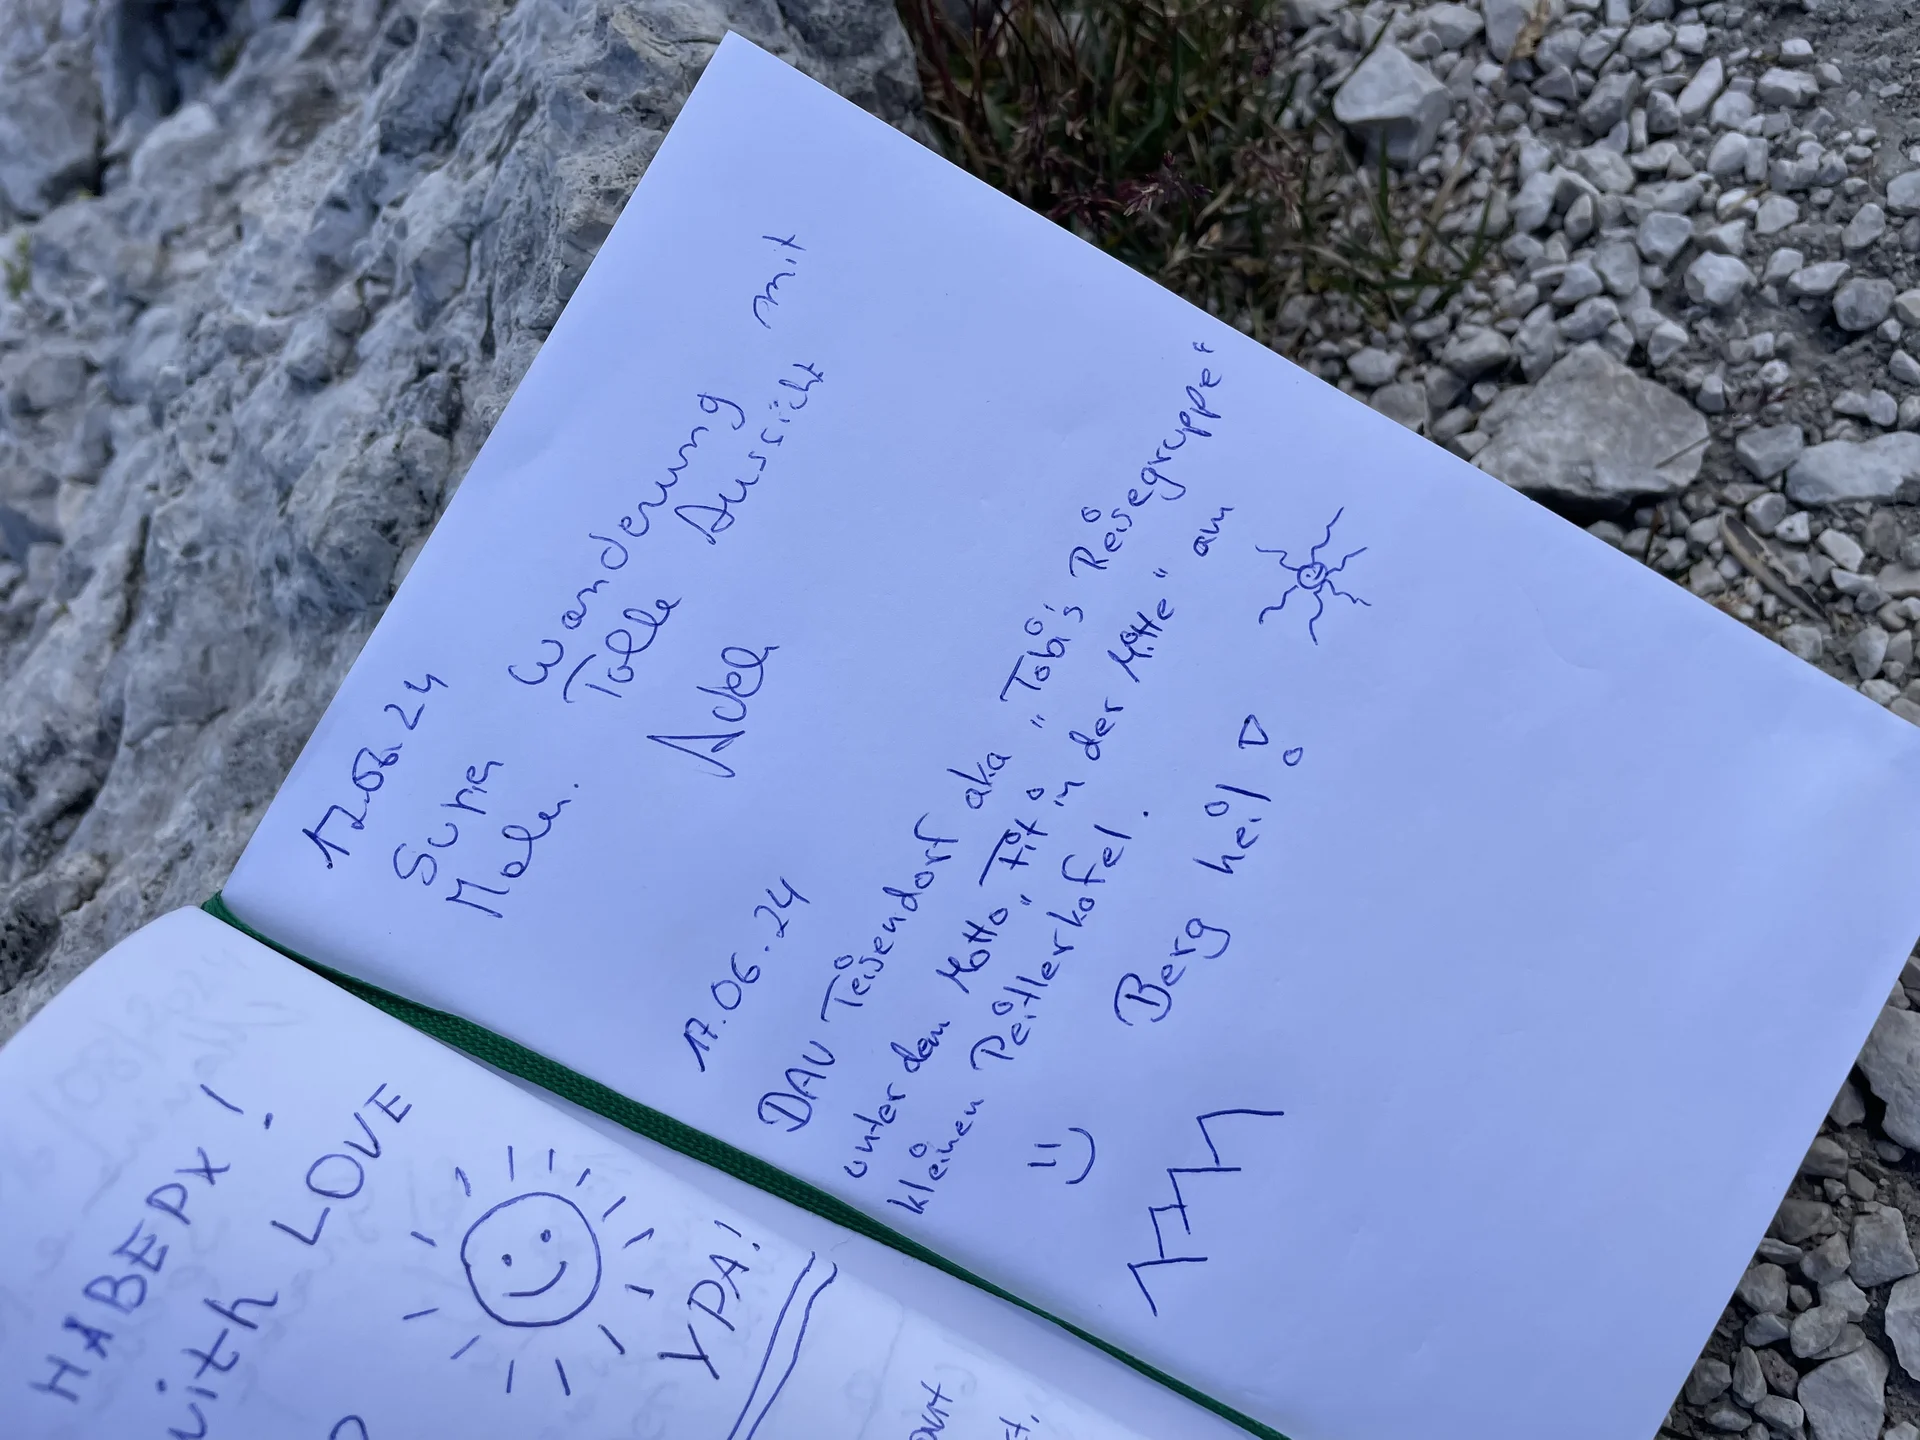 НАВЕРХ!
with LOVE
УРА!
17.06.24
Super Wanderung mit
Tolle Aussicht
Adel
17.06.24
DAV Teisendorf aka „Tobi's Reisegruppe"
unter dem Motto „Fit in der Mitte" am
kleinen Peitlerkofel.
Berg heil!